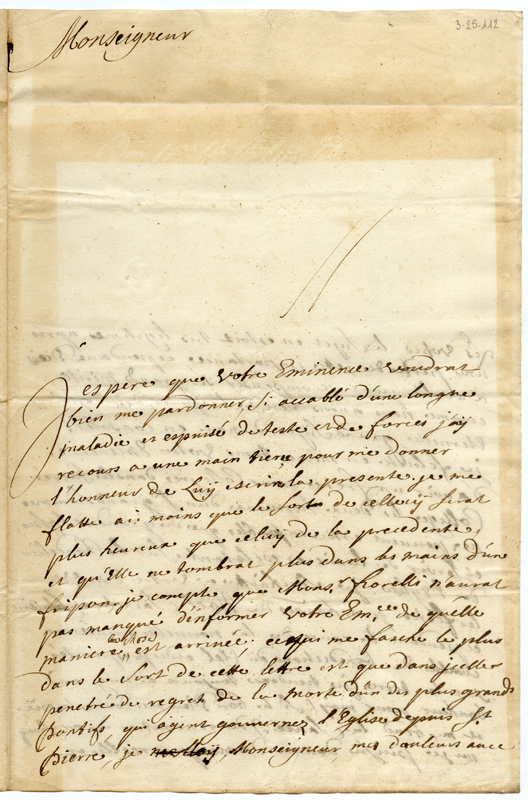 3-25-112
Monseigneur
J'espere que Votre Eminence voudrat
bien me pardonner, si accablé d'une longue
maladie et espuisé de teste et de forces j'ay
recours a une main tiere pour me donner
l'honneur de Luy escrire la presente. je me
flatte au moins que le sort de celle cy serat
plus heureux que celuy de la precedente
et qu'Elle ne tombrat plus dans les mains d'une
fripon. je compte que Monsr fiorelli n'aurat
pas manqué d'enformer Votre Em.ce de quelle
maniere la chose est arrivée. ce qui me fasche le plus
dans le sort de cette lettre est que dans jcelle
penetré de regret de la morte d'un des plus grands
Pontifs, qui ayent gouvernez l'Eglise depuis St
Pierre, je Monseigneur mes douleurs avec